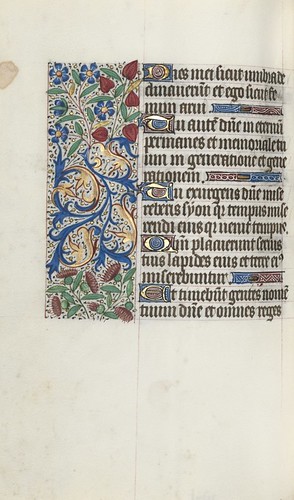 Dies mei sicut umbra de
clinaverunt et ego sicut fe
num arui
Tu autem dñe in eternũ
permanes et memoriale tu
um in generatione et gene
rationem
Tu exurgens dñe mise
reberis syon qr tempus mise
rendi eius qr venit tempus
Qm placuerunt servis
tuis lapides eius et terre ei9
miserebuntur
Et timebũt gentes nomẽ
tuum dñe et omnes reges